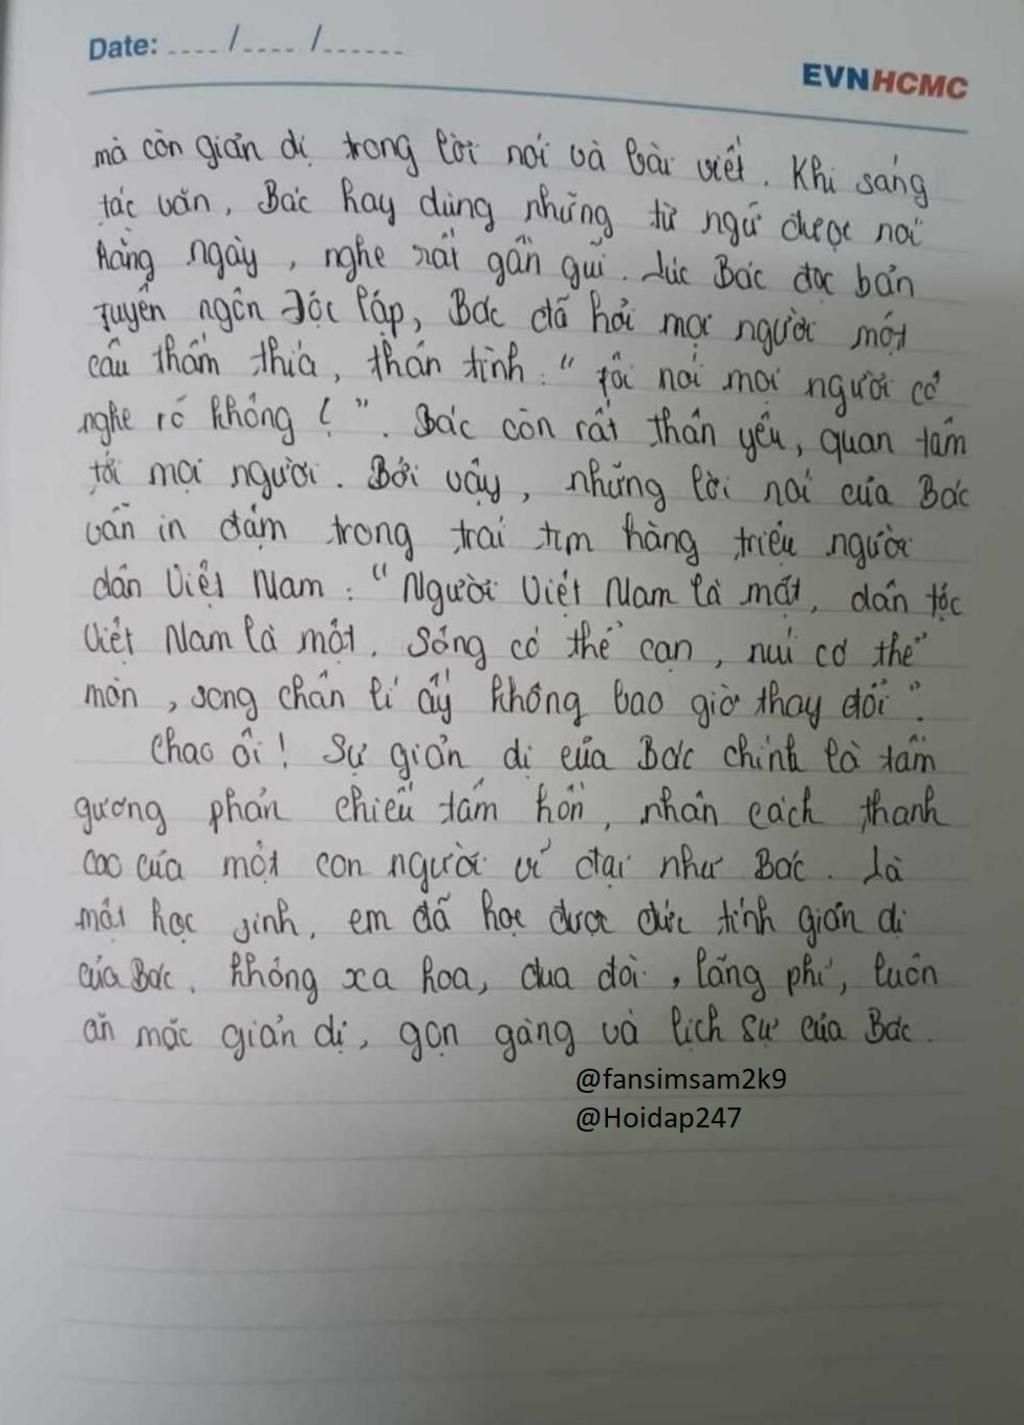 Date: ..../..../......
EVNHCMC
mà còn giản dị trong lời nói và bài viết. Khi sáng
tác văn, Bác hay dùng những từ ngữ được nói
hàng ngày, nghe rất gần gũi. Lúc Bác đọc bản
Tuyên ngôn Độc lập, Bác đã hỏi mọi người một
câu thấm thía, thân tình: "Tôi nói mọi người có
nghe rõ không?". Bác còn rất thân yêu, quan tâm
tới mọi người. Bởi vậy, những lời nói của Bác
vẫn in đậm trong trái tim hàng triệu người
dân Việt Nam: "Người Việt Nam là một, dân tộc
Việt Nam là một. Sông có thể cạn, núi có thể
mòn, song chân lí ấy không bao giờ thay đổi".
Chao ôi! Sự giản dị của Bác chính là tấm
gương phản chiếu tâm hồn, nhân cách thanh
cao của một con người vĩ đại như Bác. Là
một học sinh, em đã học được đức tính giản dị
của Bác. Không xa hoa, đua đòi, lãng phí, luôn
ăn mặc giản dị, gọn gàng và lịch sự của Bác.
@fansimsam2k9
@Hoidap247